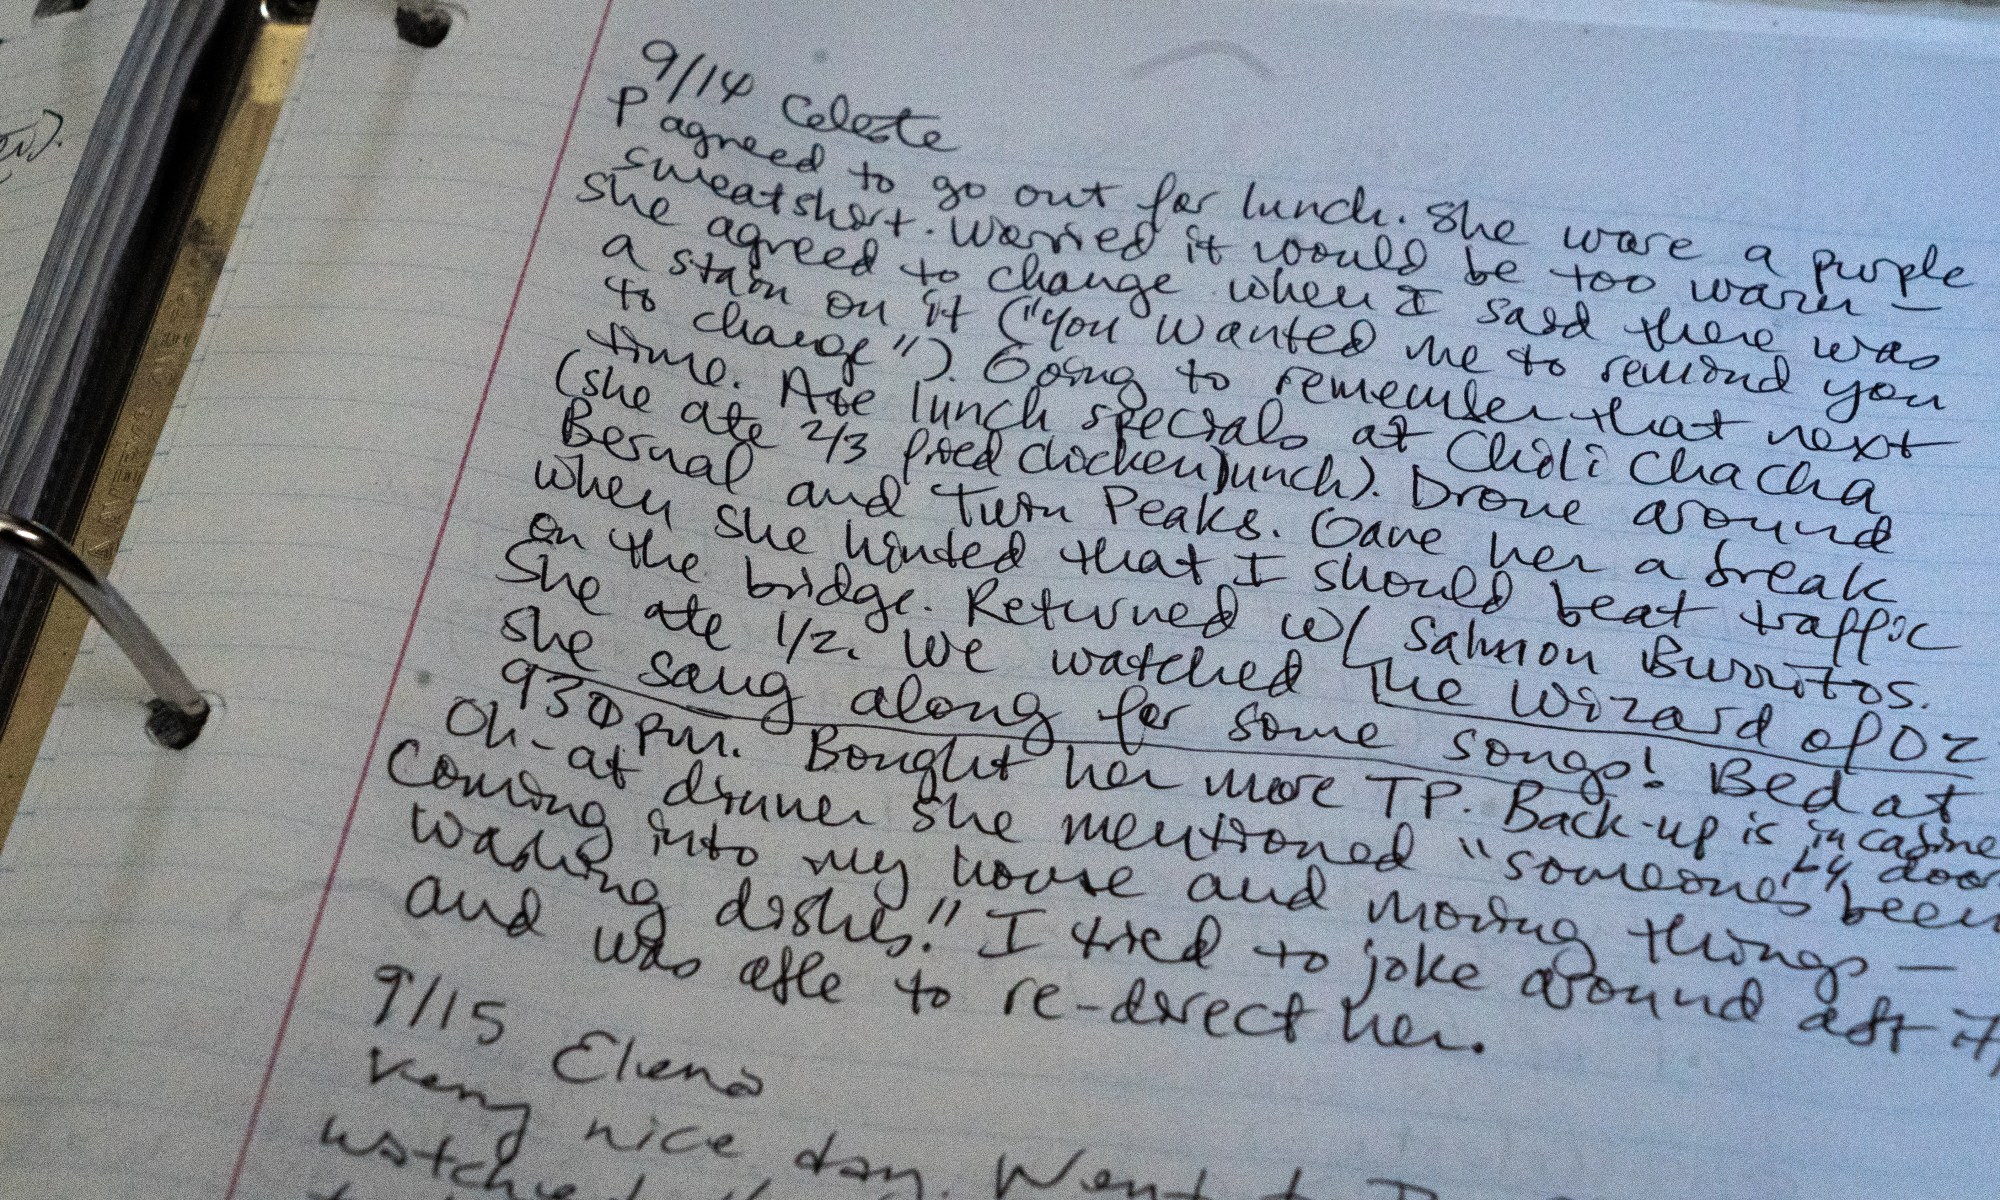 9/14 Celeste
P agreed to go out for lunch. She wore a purple
sweatshirt. Worried it would be too warm –
she agreed to change when I said there was
a stain on it ("you wanted me to remind you
to change"). Going to remember that next
time. Ate lunch specials at Chili Cha Cha
(she ate 2/3 fried chicken lunch). Drove around
Bernal and Twin Peaks. Gave her a break
when she hinted that I should beat traffic
on the bridge. Returned w/ Salmon Burritos.
She ate 1/2. We watched The Wizard of Oz
she sang along for some songs! Bed at
930pm. Bought her more TP. Back-up is in
by door
Oh – at dinner she mentioned "someone's been
coming into my house and moving things –
washing dishes." I tried to joke around abt it,
and was able to re-direct her.
9/15 Elena
Very nice day. Went to
watched